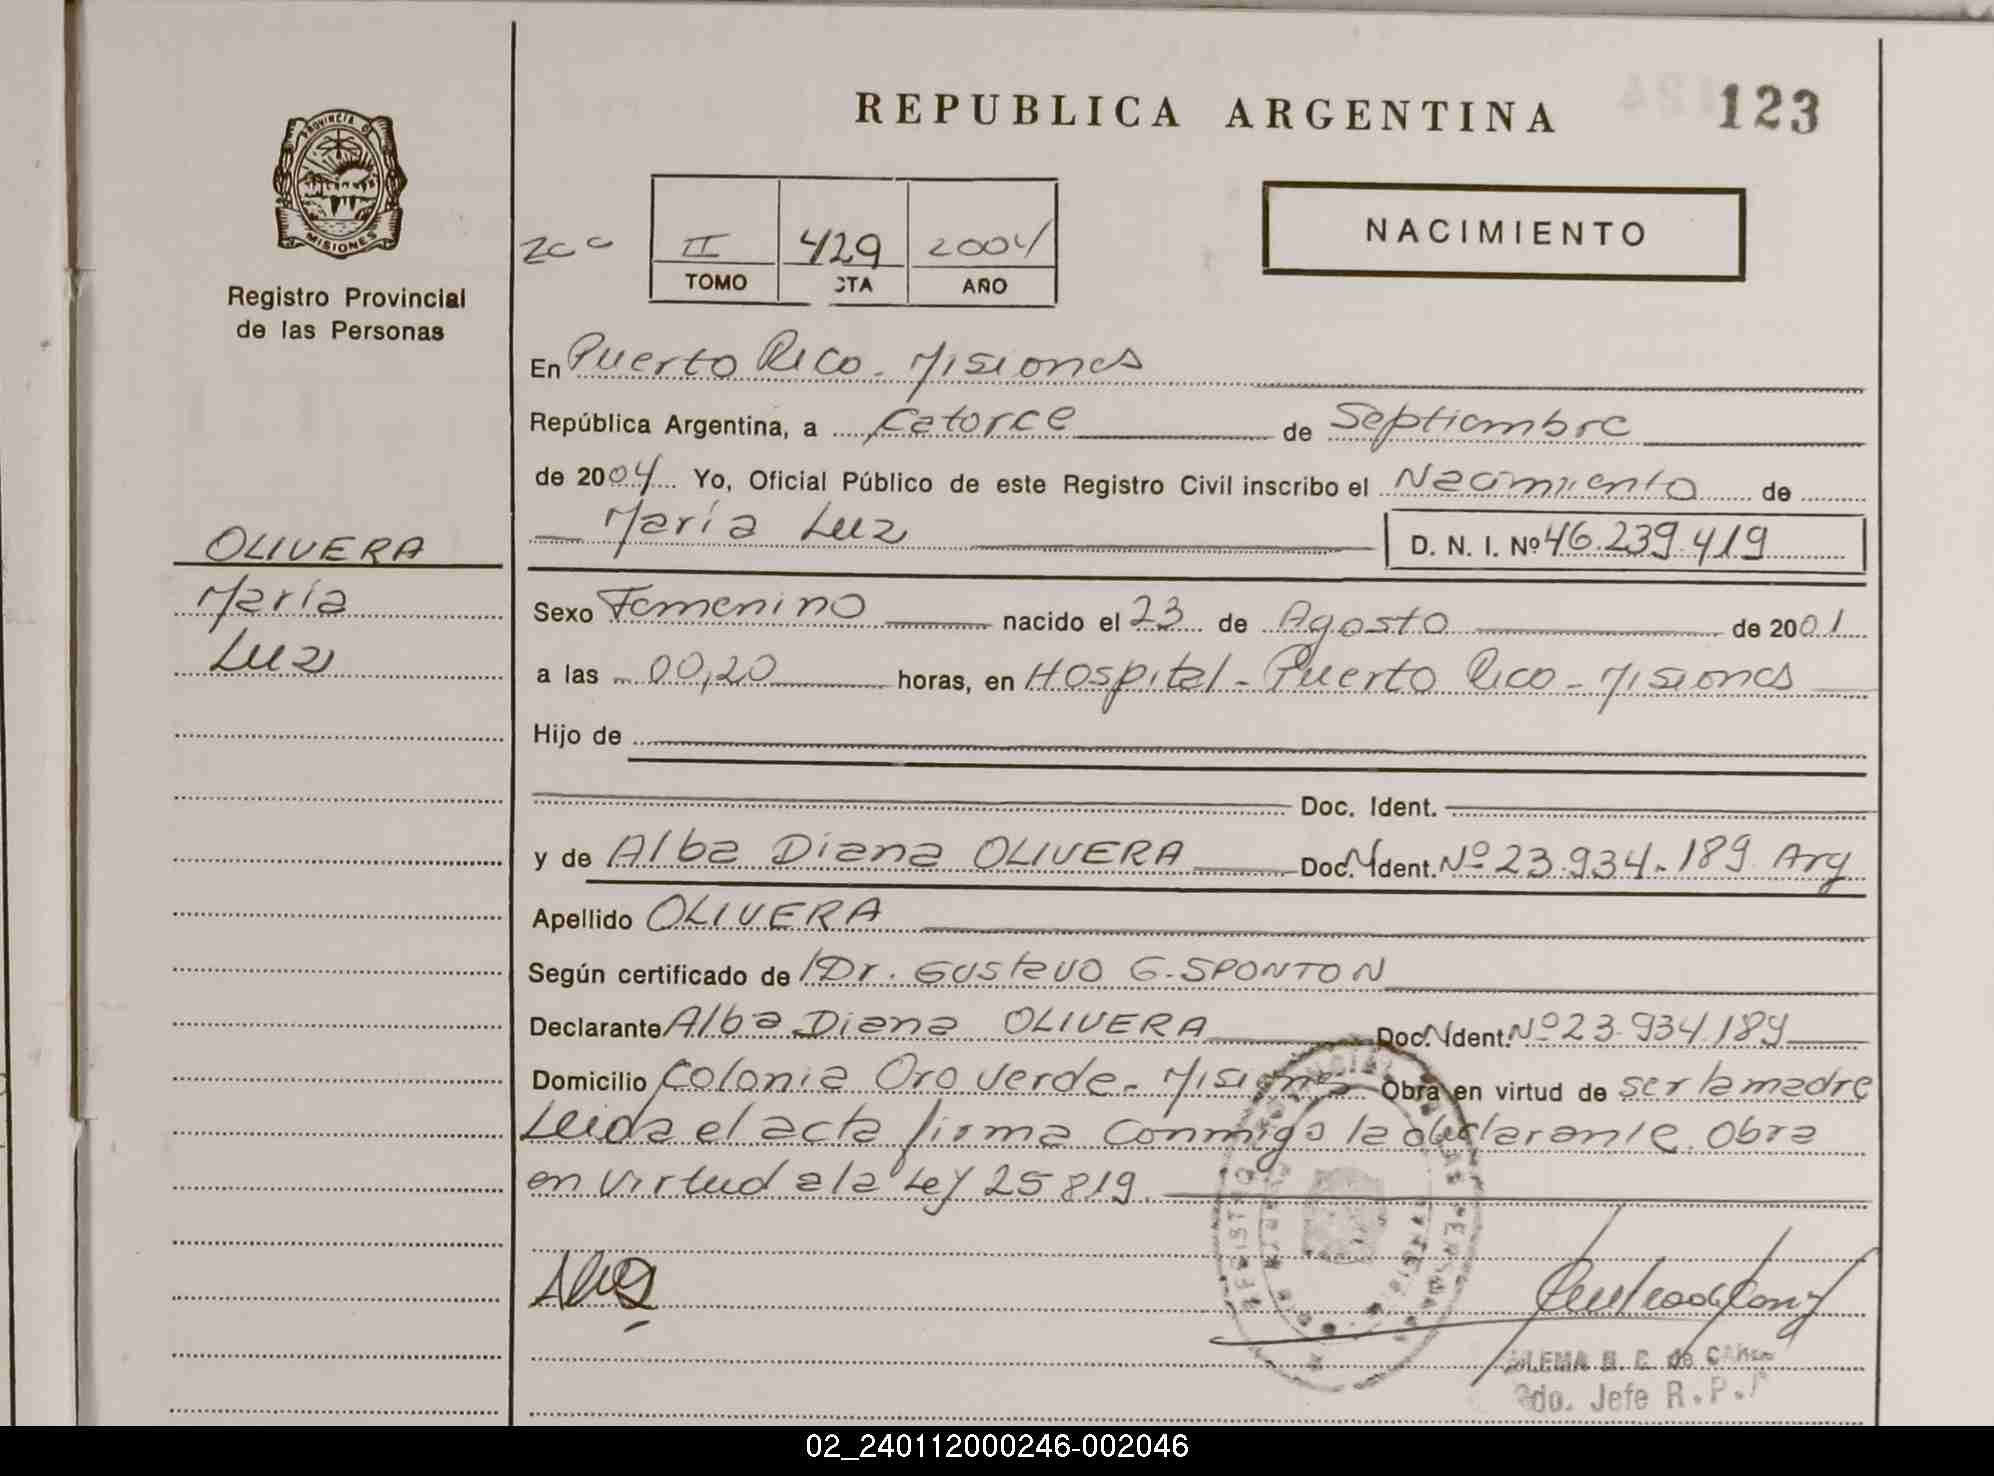 REPUBLICA ARGENTINA
123
PROVINCIA DE
MISIONES
Registro Provincial
de las Personas
II 429 2004
TOMO CTA AÑO
NACIMIENTO
En Puerto Rico - Misiones
República Argentina, a Catorce de Septiembre
de 2004 Yo, Oficial Público de este Registro Civil inscribo el Nacimiento de
María Luz D. N. I. Nº 46.239.419
OLIVERA
María
Luz
Sexo Femenino nacido el 23 de Agosto de 2001
a las 00,20 horas, en Hospital - Puerto Rico - Misiones
Hijo de
Doc. Ident.
y de Alba Diana OLIVERA Doc. Ident. Nº 23.934.189 Arg
Apellido OLIVERA
Según certificado de Dr. Gustavo G. SPONTON
Declarante Alba Diana OLIVERA Doc. Ident. Nº 23.934.189
Domicilio Colonia Oro Verde - Misiones Obra en virtud de ser la madre
Leida el acta firma conmigo la declarante. Obra
en virtud a la Ley 25819.
2do. Jefe R. P.
02_240112000246-002046